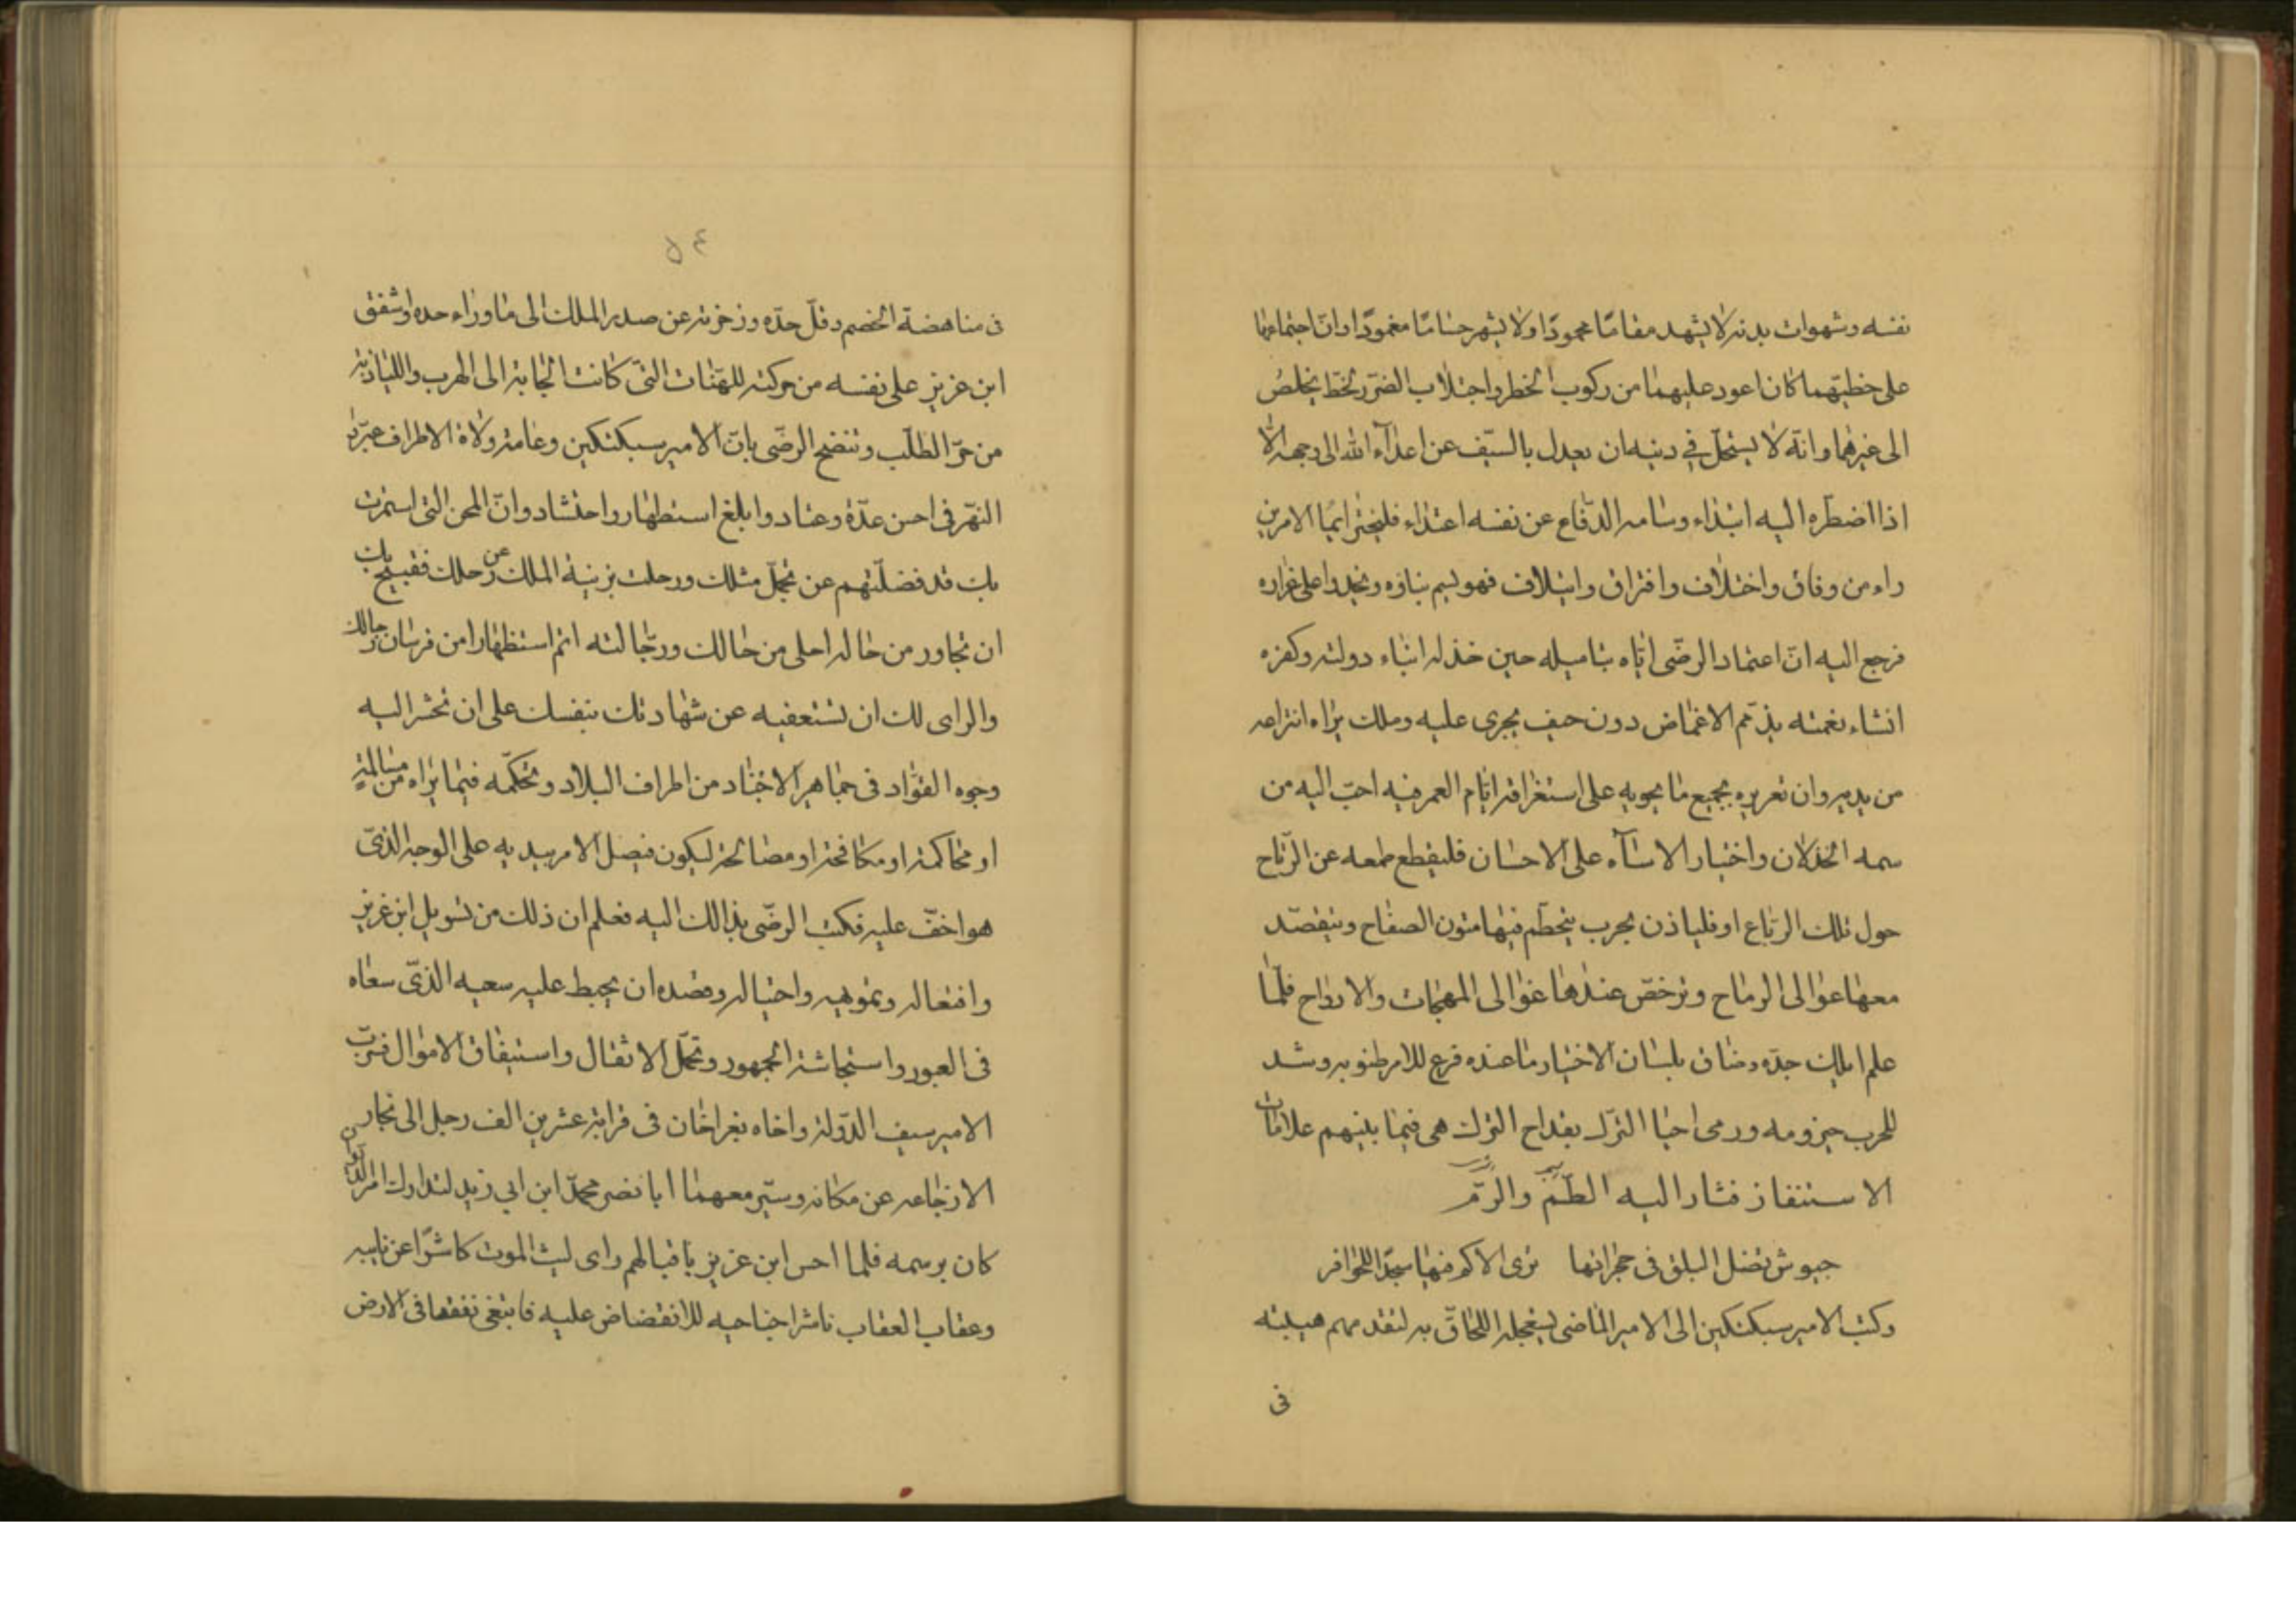 نفسه وشهوات بدنه لا يشهد مقامًا محمودًا ولا يشهر حسامًا مغمودًا وانّ اجتماعهما
على خطبتهما كان اعود عليهما من ركوب الخطر واجتلاب الضرر لخطّ يخلص
الى غيرهما وانّه لا يستحلّ في دينه ان يعدل بالسّيف عن اعدآء الله الى وجهه الّا
اذا اضطرّه اليه ابتداء وسامه الدفاع عن نفسه اعتداء فليختر ايّما الامرين
راء من وفاق واختلاف وافتراق وايتلاف فهو
فرجع اليه انّ اعتماد الرضّى ايّاه بتاميله حين خذله ابناء دولته وكفره
انشاء نعمته يذمّم الاغماض دون حيف يجرى عليه وملك يراد انتزاعه
من يديه وان تعزيره بجميع ما يحويه على استغراقه ايّام العمر فيه احبّ اليه من
سمه الخذلان واختيار الاسآه على الاحسان فليقطع طمعه عن الرّباح
حول تلك الرباع او فلياذن بحرب يتحطّم فيها متون الصفاح ويتقصّد
معها عوالى الرماح وترخص عندها غوالى المهجات والارواح فلمّا
علم ايلك جدّه وضاق بلسان الاختيار ما عنده قرع للامر ظنوبه وشد
للحرب حيزومه ورمى احيا الترك بقداح الترك هى فيما بينهم علامات
الاستنفار فثار اليه الطّمّ والرّمّ
جيوش تضل البلق فى حجراتها ترى الاكم فيها سجّدا للحوافر
وكتب الامير سبكتكين الى الامير الماضى ليعجله اللحاق به لتقدمهم هيبته
فى
٥٤
فى مناهضة الخصم وفلّ حدّه وزحزحته عن صدر الملك الى ما وراء حده واشفق
ابن عزيز على نفسه من حركته للهنات التى كانت الجاته الى الهرب واللياذ به
من حرّ الطلب وتنصّح الرضّى بانّ الامير سبكتكين وعامة ولاة الاطراف عبروا
النهر فى احسن عدّة وعتاد وابلغ استظهار واحتشاد وانّ المحن التى استمرت
بك قد فضلتهم عن تجمّل مثلك ورحلت بزينة الملك عن رحلك فقبيح بك
ان تجاور من حاله احلى من حالك ورجّالته اتم استظهارا من فرسان رجالك
والراى لك ان تستعفيه عن شهادتك بنفسك على ان تحشر اليه
وجوه القوّاد فى جماهير الاجناد من اطراف البلاد وتحكّمه فيما يراه من مسالمة
او محاكمة او مكافحة او مصالحة ليكون فيصل الامر بيديه على الوجه الذى
هو اخفّ عليه فكتب الرضّى بذالك اليه فعلم ان ذلك من تسويل ابن عزيز
وافتعاله وتمويهه واحتياله وقصده ان يحبط عليه سعيه الذى سعاه
فى العبور واستجاشة الجمهور وتحمّل الاثقال واستيفاق الاموال فسرّب
الامير سيف الدّولة واخاه بغراخان فى قرابة عشرين الف رجل الى بخارى
الازجاعه عن مكانه وسيّر معهما ابا نصر محمّد ابن ابى زيد لتدارك امر
كان برسمه فلما احس ابن عزيز باقبالهم راى ليث الموت كاشرًا عن نابيه
وعقاب العقاب ناشرا جناحيه للانقضاض عليه فابتغى نفقا فى الارض